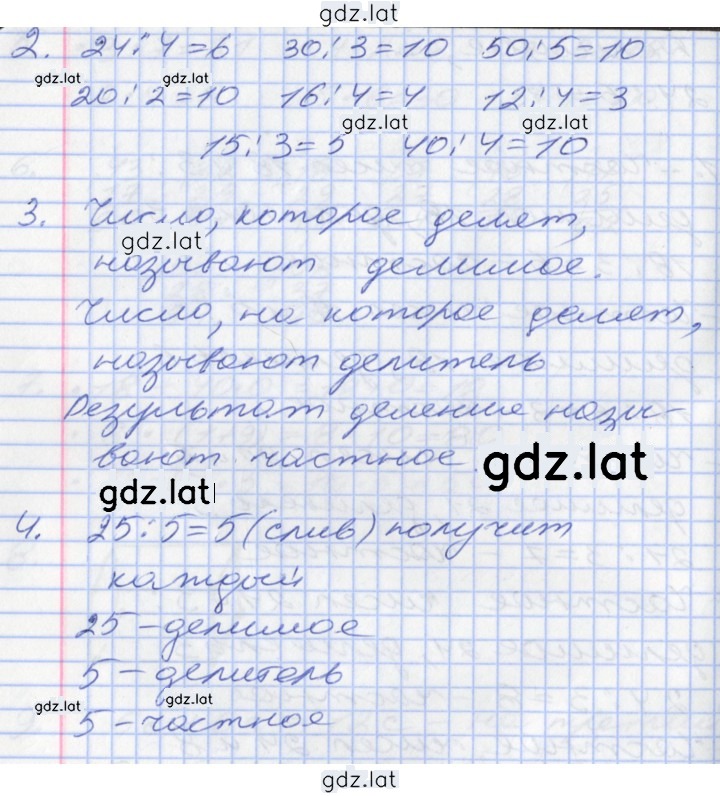 gdz.lat
2. 24:4=6 30:3=10 50:5=10
gdz.lat gdz.lat
20:2=10 16:4=4 12:4=3
gdz.lat gdz.lat
15:3=5 40:4=10
3. Число, которое делят,
gdz.lat
называют делимое.
Число, на которое делят,
называют делитель
Результат деление назы-
вают частное
gdz.lat
gdz.lat
4. 25:5=5 (слив) получит
каждый
25-делимое
5-делитель
gdz.lat gdz.lat
5-частное
gdz.lat